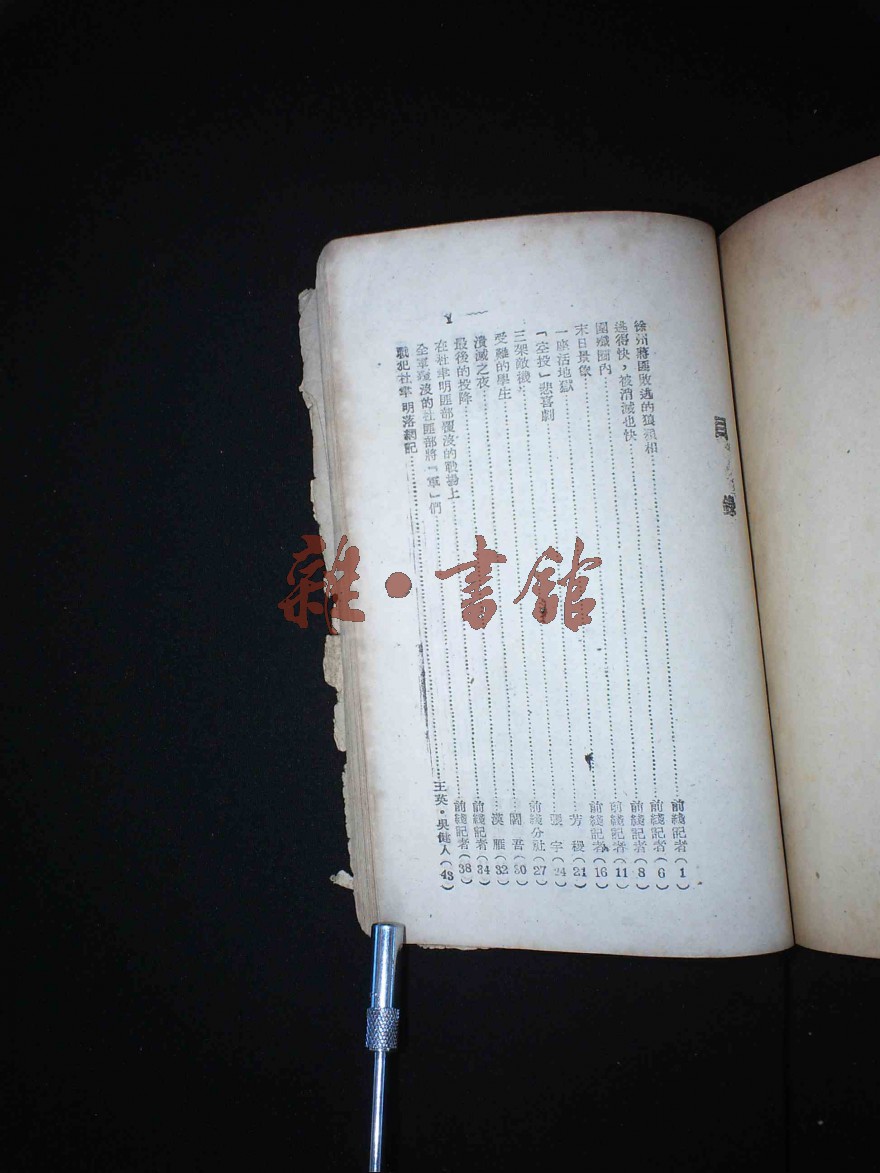 目錄
徐州蔣匪敗逃的狼狽相……前綫記者(1)
逃得快，被消滅也快……前綫記者(6)
圍殲圈內……前綫記者(8)
末日景象……前綫記者(11)
一座活地獄……前綫記者(16)
「空投」悲喜劇……芳稷(21)
三架敵機……張宇(24)
受難的學生……前綫分社(27)
潰滅之夜……閻吾(30)
最後的投降……漢雁(32)
在杜聿明匪部覆沒的戰場上……前綫記者(34)
全軍覆沒的杜匪部將「軍」們……前綫記者(38)
戰犯杜聿明落網記……王英・吳健人(43)
雜・書館